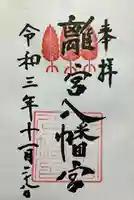 奉拝
離宮八幡宮
令和三年十一月二九日